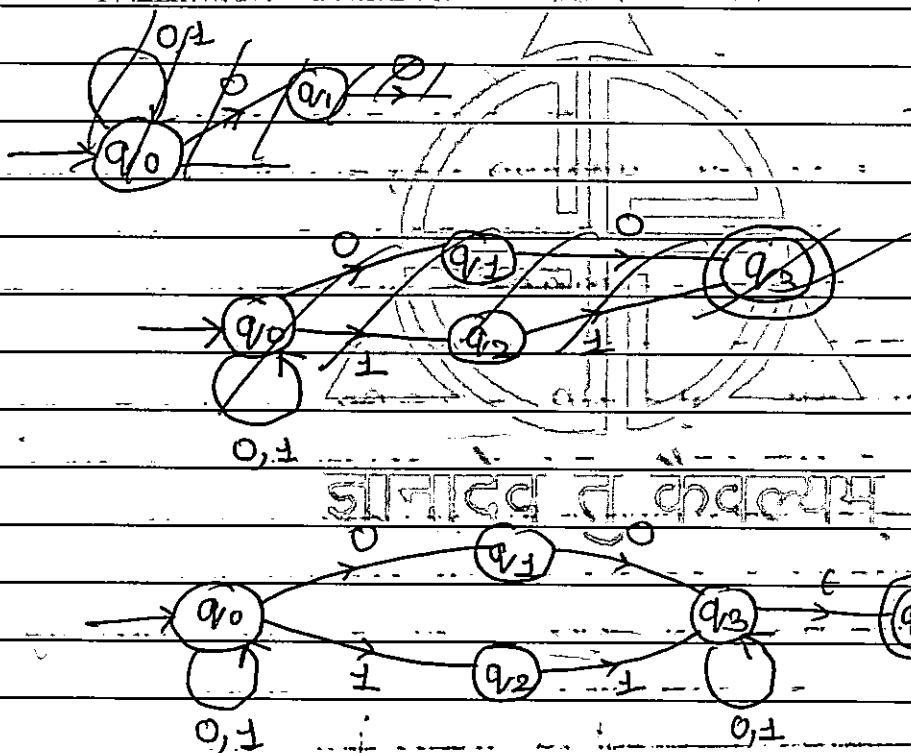 0,1
0 q1 0
q0
0 q1 0 q3
q0 1 q2 1
0,1
ज्ञानादेव तु कैवल्यम
0 q1 0
q0 q3 ε q
1 q2 1
0,1 0,1